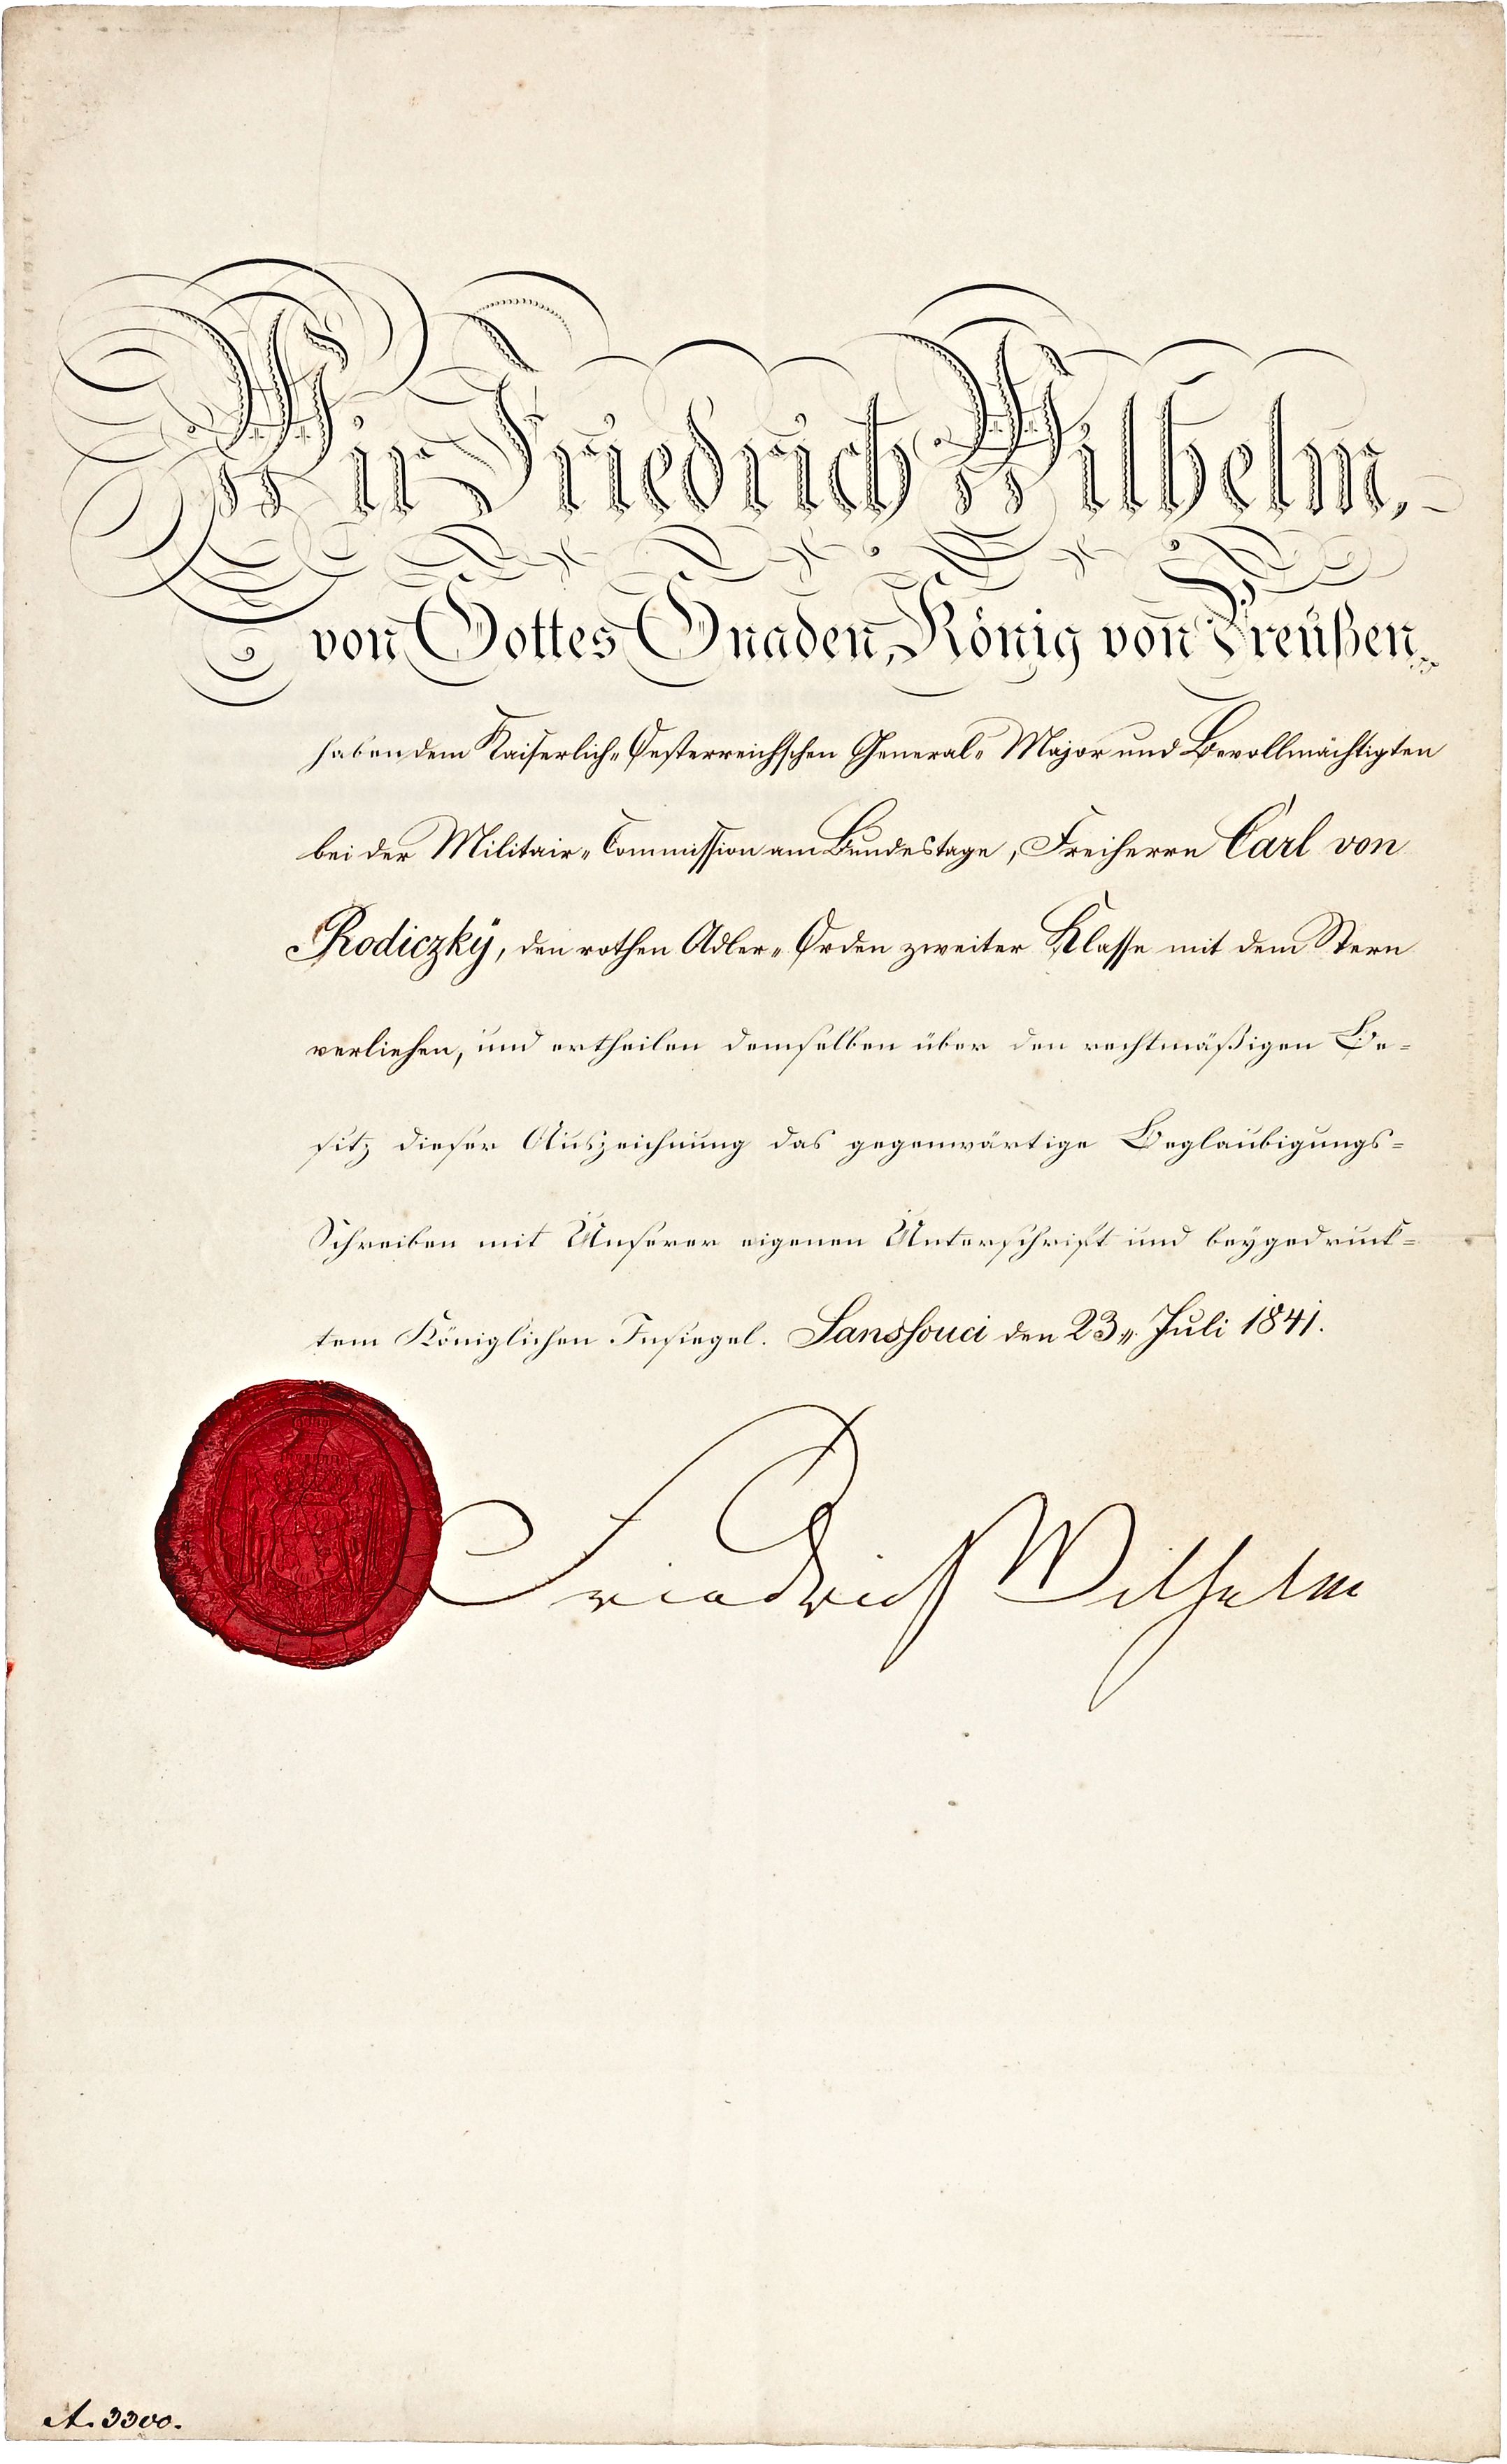 Wir Friedrich Wilhelm,
von Gottes Gnaden, König von Preußen
haben dem Kaiserlich-Oesterreichschen General-Major und Bevollmächtigten
bei der Militair-Commission am Bundestage, Freiherrn Carl von
Rodiczkÿ, den rothen Adler-Orden zweiter Klasse mit dem Stern
verliehen, und ertheilen demselben über den rechtmäßigen Be=
sitz dieser Auszeichnung das gegenwärtige Beglaubigungs=
Schreiben mit Unserer eigenen Unterschrift und beygedruck=
tem Königlichen Insiegel. Sanssouci den 23n. Juli 1841.
Friedrich Wilhelm
A. 3300.